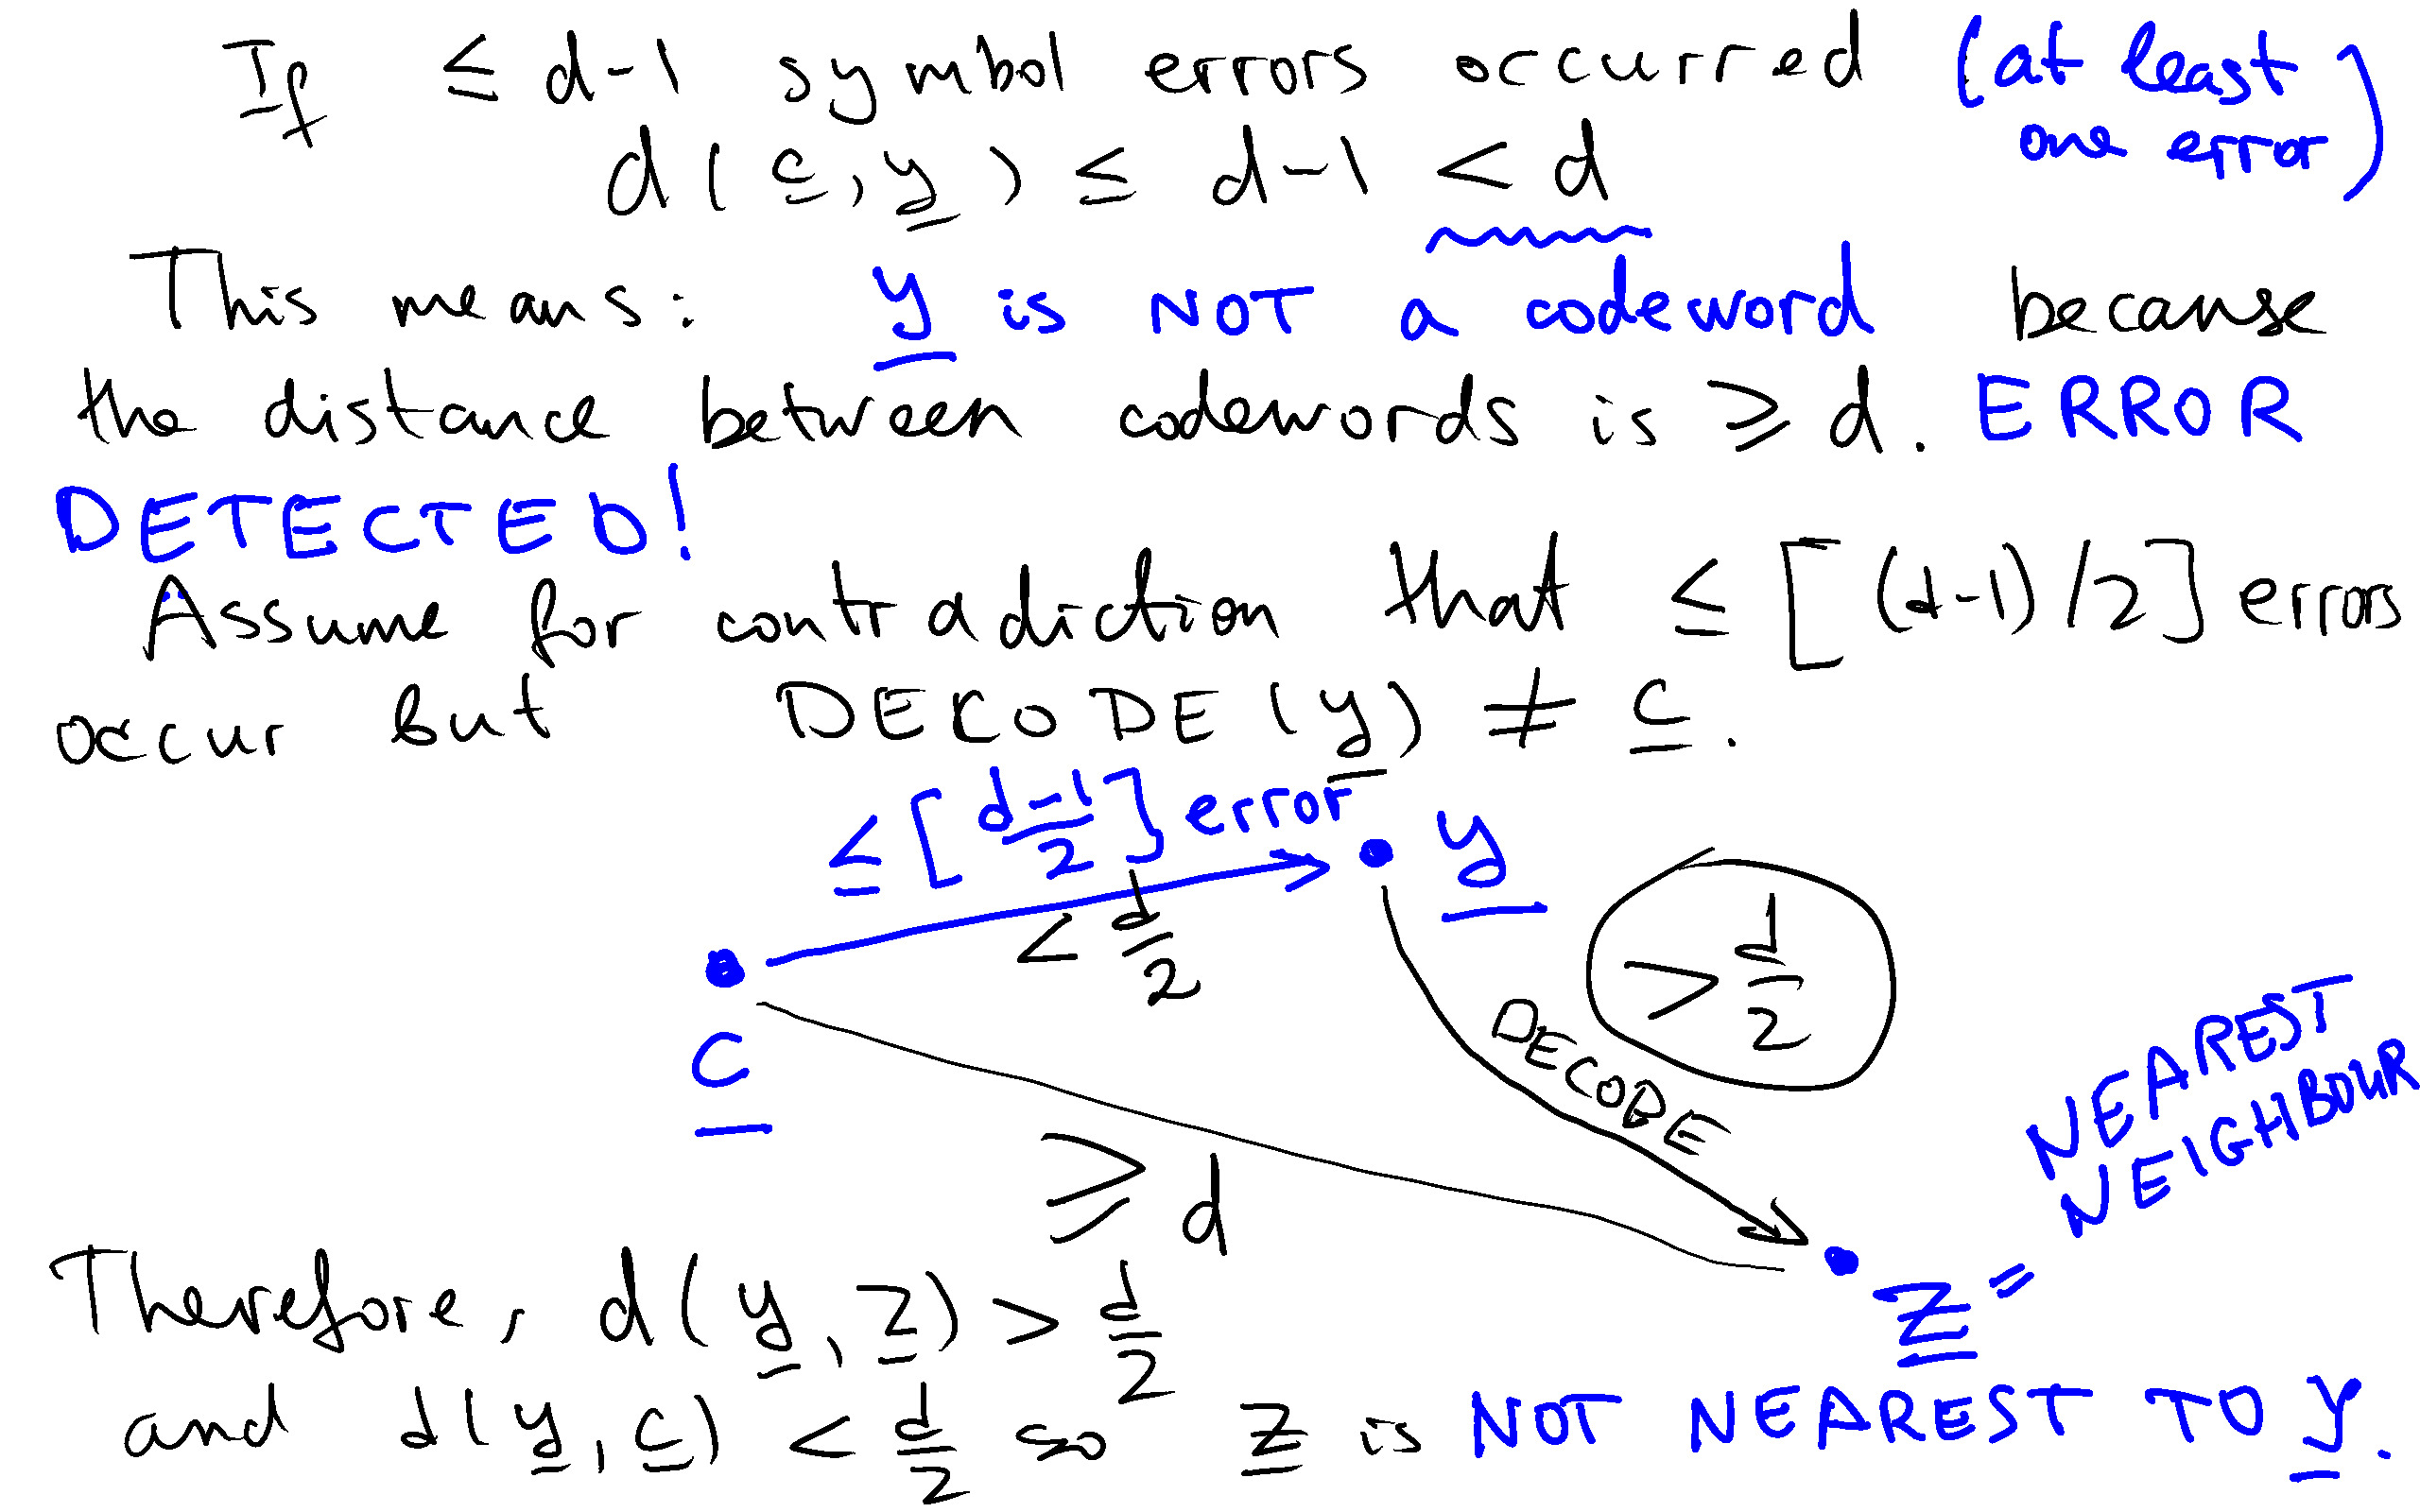 If ≤ d-1 symbol errors occurred (at least one error)
d(c, y) ≤ d-1 < d
This means: y is NOT a codeword because
the distance between codewords is ⩾ d. ERROR
DETECTED!
Assume for contradiction that ≤ [(d-1)/2] errors
occur but DECODE(y) ≠ c.
≤ [d-1/2] error
y
< d/2
> d/2
c
DECODE
NEAREST
NEIGHBOUR
⩾ d
z =
Therefore, d(y, z) > d/2
and d(y, c) < d/2 so z is NOT NEAREST TO y.